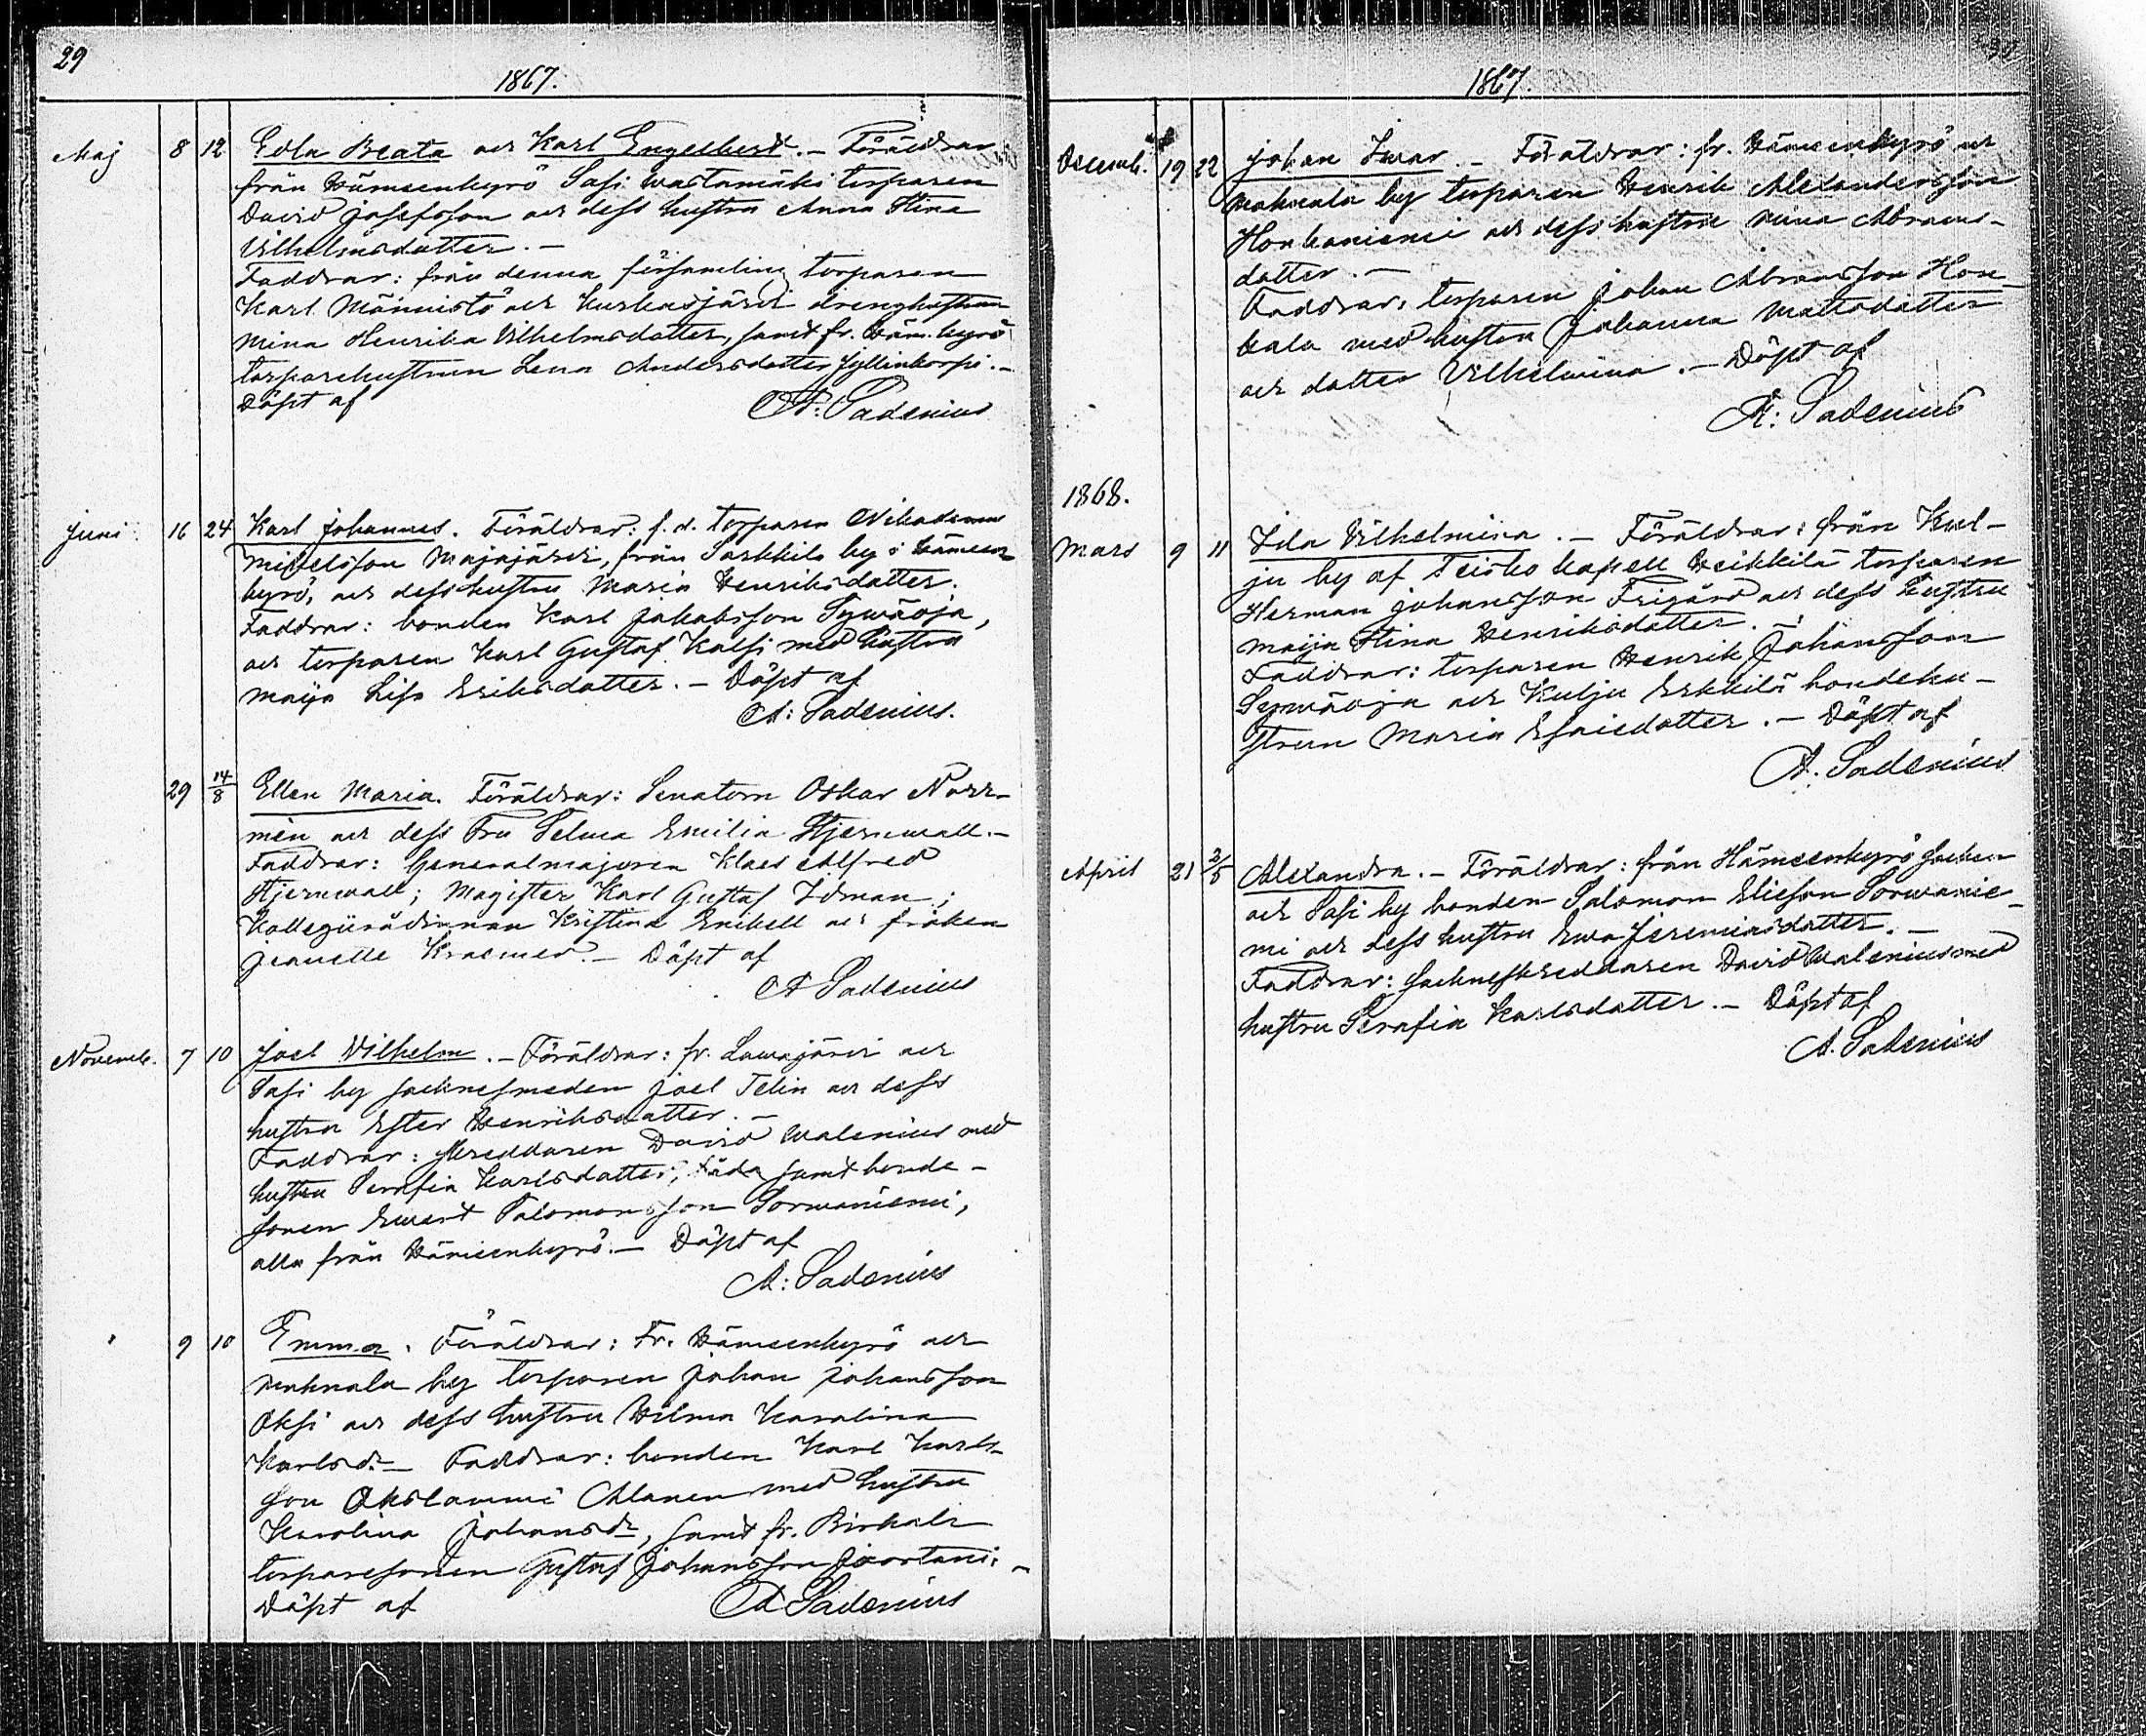 29
1867.
Maj 8 12 Edla Beata och Karl Engelbert. — Föräldrar
från Hämeenkyrö Sasi Wastamäki torparen
David Josefsson och dess hustru Anna Stina
Vilhelmsdotter. —
Faddrar: från denna församling torparen
Karl Männistö och Kurkasjärvi drenghustrun
Mina Henrika Vilhelmsdotter, samt fr. Häm. kyrö
torparehustrun Lena Andersdotter Jyllinkorpi. —
Döpt af
A: Sadenius
Juni 16 24 Karl Johannes. Föräldrar: f. d. torparen Nikodemus
Mickelsson Majajärvi, från Sarkkila by i Hämeen
kyrö, och dess hustru Maria Henriksdotter.
Faddrar: bonden Karl Jakobsson Sywäoja,
och torparen Karl Gustaf Kalsi med hustru
Maija Lisa Eriksdotter. — Döpt af
A: Sadenius.
29 14/8 Ellen Maria. Föräldrar: Senatorn Oskar Norr-
mén och dess Fru Selma Emilia Stjernwall. —
Faddrar: Generalmajoren Klaes Alfred
Stjernwall; Magister Karl Gustaf Idman;
Kollegiirådinnan Kristina Enckell och fröken
Jeanette Kraemer. — Döpt af
A Sadenius
Novemb. 7 10 Joel Vilhelm. — Föräldrar: fr. Lawajärvi och
Sasi by socknesmeden Joel Telin och dess
hustru Ester Henriksdotter. —
Faddrar: skreddaren David Walenius med
hustru Serafia Karlsdotter, samt bonde-
sonen Ewert Salomonsson Sorwaniemi,
alla från Hämeenkyrö. — Döpt af
A: Sadenius
9 10 Emma. Föräldrar: Fr. Hämeenkyrö och
Mahnala by torparen Johan Johansson
Oksi och dess hustru Hilma Karolina
Karlsdr. — Faddrar: bonden Karl Karls-
son Alanen med hustru
Karolina Johansdr, samt fr. Birkala
torparesonen Gustaf Johansson
Döpt af
A Sadenius
30
1867.
Decemb. 19 22 Johan Iwar. — Föräldrar: fr. Hämeenkyrö och
Mahnala by torparen Henrik Alexandersson
Honkaniemi och dess hustru Mina Abrams-
dotter. —
Faddrar: torparen Johan Abramsson Hon-
kala med hustru Johanna Mattsdotter
och dotter Vilhelmina. — Döpt af
A: Sadenius
1868.
Mars 9 11 Ida Vilhelmina. — Föräldrar: från Kul-
ju by af Teisko kapell Heikkilä torparen
Herman Johansson Frigård och dess hustru
Maija Stina Henriksdotter. —
Faddrar: torparen Henrik Johansson
Sywäoja och Kulju Erkkilä bondehu-
strun Maria Esaiedotter. — Döpt af
A. Sadenius
April 21 3/5 Alexandra. — Föräldrar: från Hämeenkyrö socken
och Sasi by bonden Salomon Eliesson Sorwanie-
mi och dess hustru Ewa Jeremiasdotter. —
Faddrar: sockneskreddaren David Walenius med
hustru Serafia Karlsdotter. — Döpt af
A. Sadenius